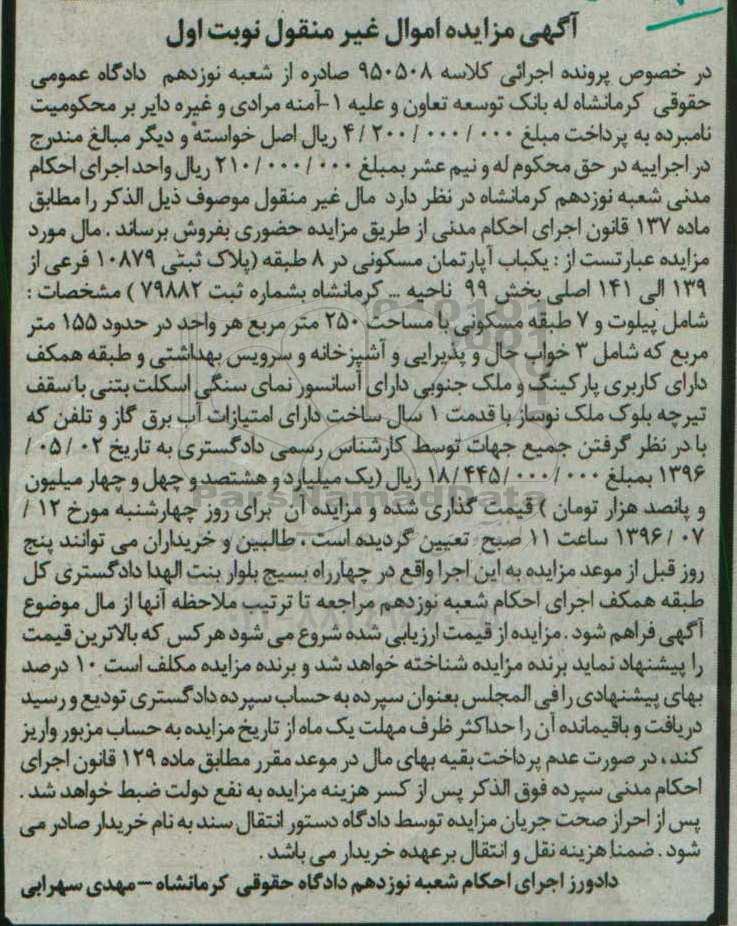 آگهی مزایده اموال غیر منقول نوبت اول
در خصوص پرونده اجرائی کلاسه ۹۵۰۵۰۸ صادره از شعبه نوزدهم دادگاه عمومی
حقوقی کرمانشاه له بانک توسعه تعاون و علیه ۱-آمنه مرادی و غیره دایر بر محکومیت
نامبرده به پرداخت مبلغ ۴/۲۰۰/۰۰۰/۰۰۰ ریال اصل خواسته و دیگر مبالغ مندرج
در اجراییه در حق محکوم له و نیم عشر بمبلغ ۲۱۰/۰۰۰/۰۰۰ ریال واحد اجرای احکام
مدنی شعبه نوزدهم کرمانشاه در نظر دارد مال غیر منقول موصوف ذیل الذکر را مطابق
ماده ۱۳۷ قانون اجرای احکام مدنی از طریق مزایده حضوری بفروش برساند . مال مورد
مزایده عبارتست از : یکباب آپارتمان مسکونی در ۸ طبقه (پلاک ثبتی ۱۰۸۷۹ فرعی از
۱۳۹ الی ۱۴۱ اصلی بخش ۹۹ ناحیه ... کرمانشاه بشماره ثبت ۷۹۸۸۲ ) مشخصات :
شامل پیلوت و ۷ طبقه مسکونی با مساحت ۲۵۰ متر مربع هر واحد در حدود ۱۵۵ متر
مربع که شامل ۳ خواب حال و پذیرایی و آشپزخانه و سرویس بهداشتی و طبقه همکف
دارای کاربری پارکینگ و ملک جنوبی دارای آسانسور نمای سنگی اسکلت بتنی با سقف
تیرچه بلوک ملک نوساز با قدمت ۱ سال ساخت دارای امتیازات آب برق گاز و تلفن که
با در نظر گرفتن جمیع جهات توسط کارشناس رسمی دادگستری به تاریخ ۰۲ / ۰۵ /
۱۳۹۶ بمبلغ ۱۸/۴۴۵/۰۰۰/۰۰۰ ریال (یک میلیارد و هشتصد و چهل و چهار میلیون
و پانصد هزار تومان ) قیمت گذاری شده و مزایده آن برای روز چهارشنبه مورخ ۱۲ /
۰۷ / ۱۳۹۶ ساعت ۱۱ صبح تعیین گردیده است . طالبین و خریداران می توانند پنج
روز قبل از موعد مزایده به این اجرا واقع در چهارراه بسیج بلوار بنت الهدا دادگستری کل
طبقه همکف اجرای احکام شعبه نوزدهم مراجعه تا ترتیب ملاحظه آنها از مال موضوع
آگهی فراهم شود . مزایده از قیمت ارزیابی شده شروع می شود هر کس که بالاترین قیمت
را پیشنهاد نماید برنده مزایده شناخته خواهد شد و برنده مزایده مکلف است ۱۰ درصد
بهای پیشنهادی را فی المجلس بعنوان سپرده به حساب سپرده دادگستری تودیع و رسید
دریافت و باقیمانده آن را حداکثر ظرف مهلت یک ماه از تاریخ مزایده به حساب مزبور واریز
کند ، در صورت عدم پرداخت بقیه بهای مال در موعد مقرر مطابق ماده ۱۲۹ قانون اجرای
احکام مدنی سپرده فوق الذکر پس از کسر هزینه مزایده به نفع دولت ضبط خواهد شد .
پس از احراز صحت جریان مزایده توسط دادگاه دستور انتقال سند به نام خریدار صادر می
شود . ضمنا هزینه نقل و انتقال برعهده خریدار می باشد .
دادورز اجرای احکام شعبه نوزدهم دادگاه حقوقی کرمانشاه – مهدی سهرابی
ParsNamadData